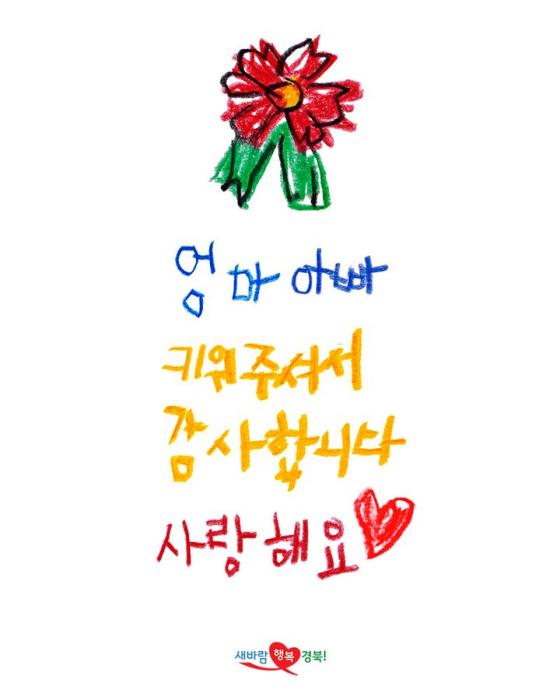 엄마 아빠
키워주셔서
감사합니다
사랑해요
새바람 행복 경북!